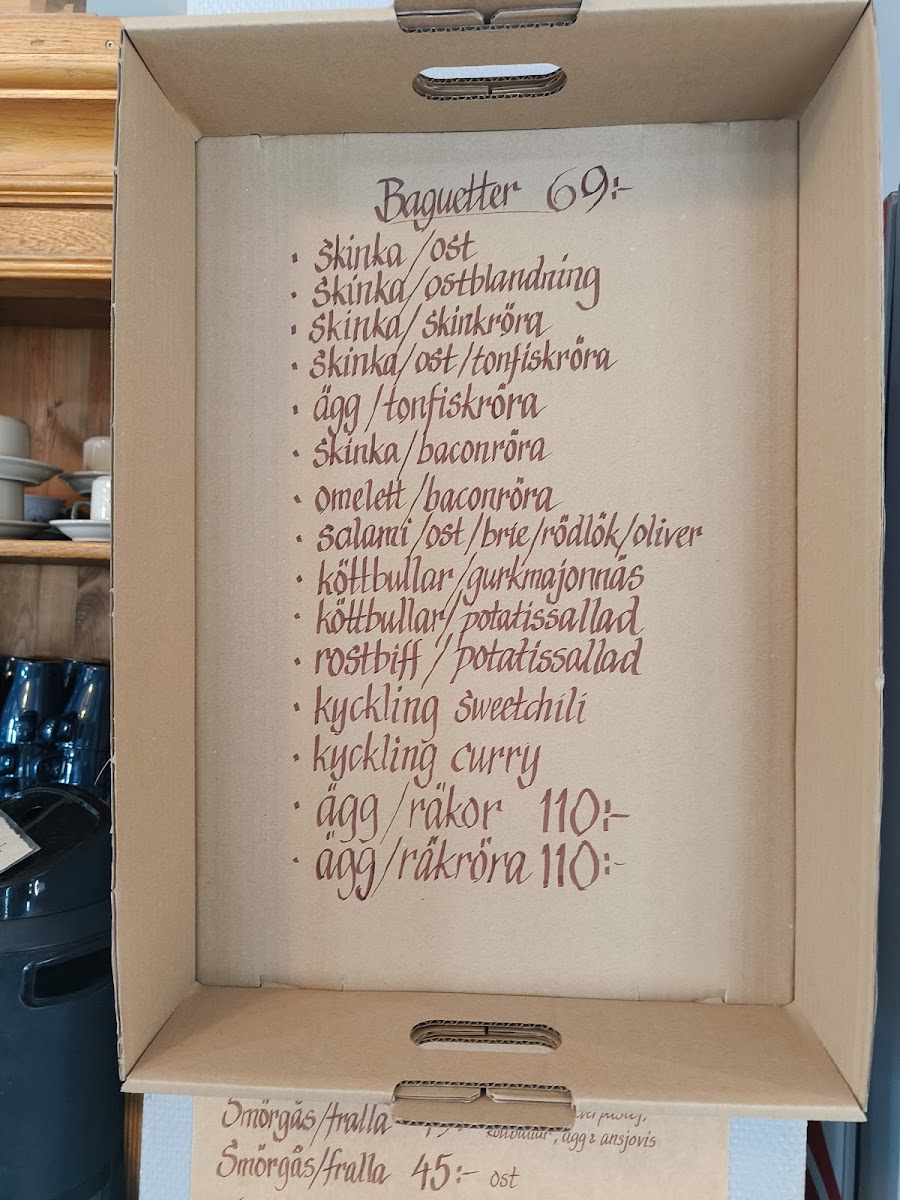 Baguetter 69:-
· skinka/ost
· skinka/ostblandning
· skinka/skinkröra
· skinka/ost/tonfiskröra
· ägg/tonfiskröra
· skinka/baconröra
· omelett/baconröra
· salami/ost/brie/rödlök/oliver
· köttbullar/gurkmajonnäs
· köttbullar/potatissallad
· rostbiff/potatissallad
· kyckling sweetchili
· kyckling curry
· ägg/räkor 110:-
· ägg/räkröra 110:-
Smörgås/fralla
köttbullar, ägg & ansjovis
Smörgås/fralla 45:- ost